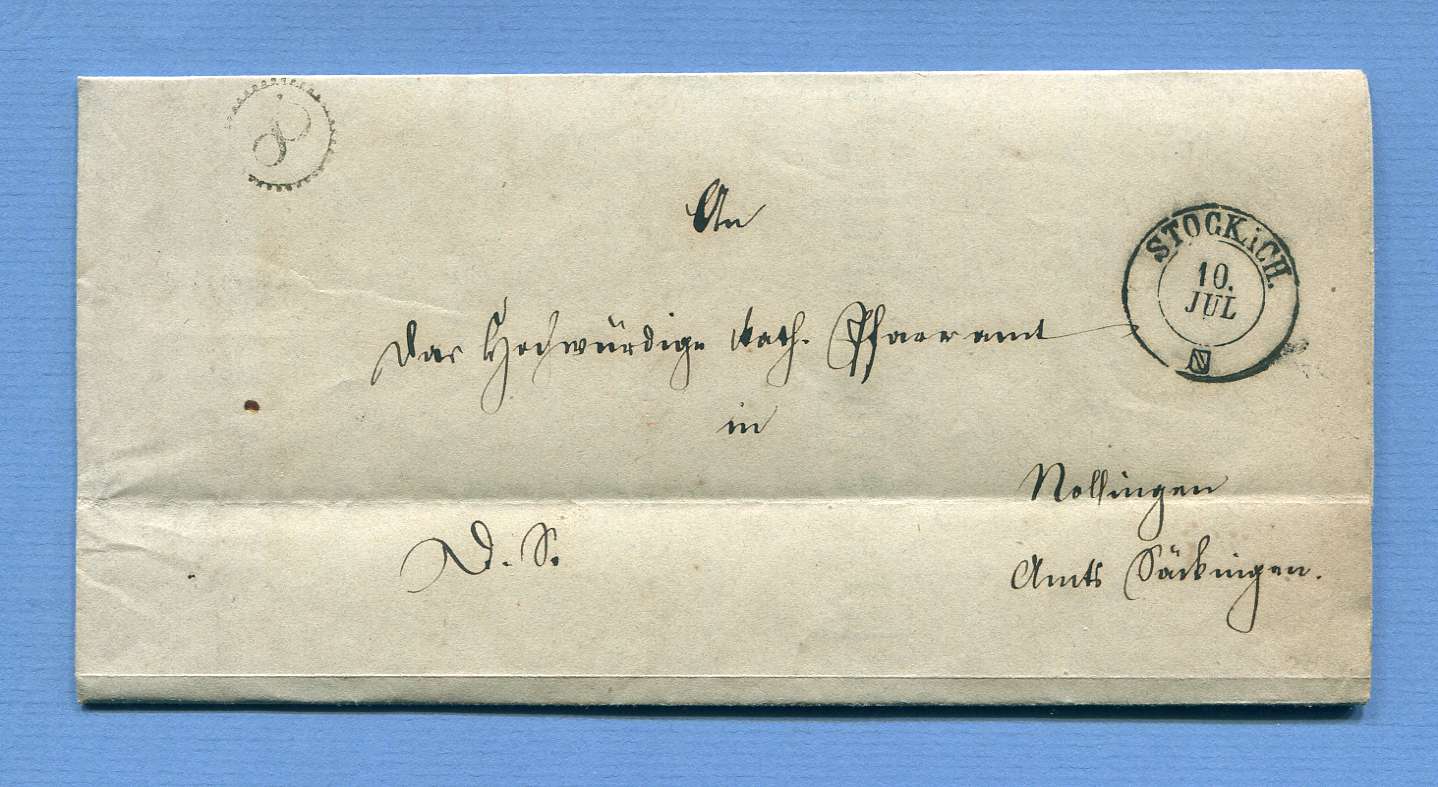 An
STOCK.iCH.
10.
JUL
N
das Hochwürdige kath. Pfarramt
in
Nollingen
D. S.
Amts Säckingen.